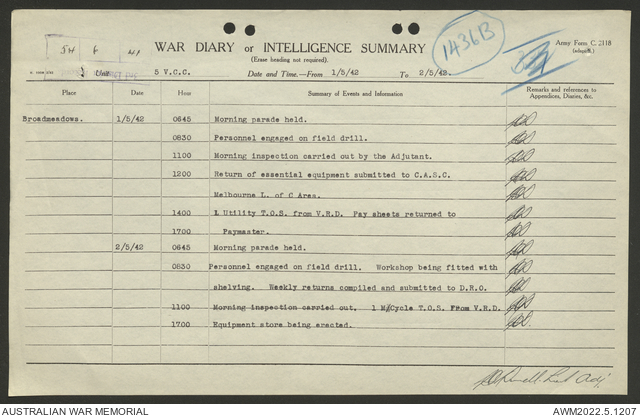 WAR DIARY or INTELLIGENCE SUMMARY
(Erase heading not required).
1436B
Army Form C. 2118
(adaptd.).
Unit 5 V.C.C. Date and Time.—From 1/5/42 To 2/5/42.
Place Date Hour Summary of Events and Information Remarks and references to Appendices, Diaries, &c.
Broadmeadows. 1/5/42 0645 Morning parade held.
0830 Personnel engaged on field drill.
1100 Morning inspection carried out by the Adjutant.
1200 Return of essential equipment submitted to C.A.S.C.
Melbourne L. of C Area.
1400 1 Utility T.O.S. from V.R.D. Pay sheets returned to
1700 Paymaster.
2/5/42 0645 Morning parade held.
0830 Personnel engaged on field drill. Workshop being fitted with
shelving. Weekly returns compiled and submitted to D.R.O.
1100 Morning inspection carried out. 1 M/Cycle T.O.S. From V.R.D.
1700 Equipment store being erected.
Adj.
AUSTRALIAN WAR MEMORIAL AWM2022.5.1207